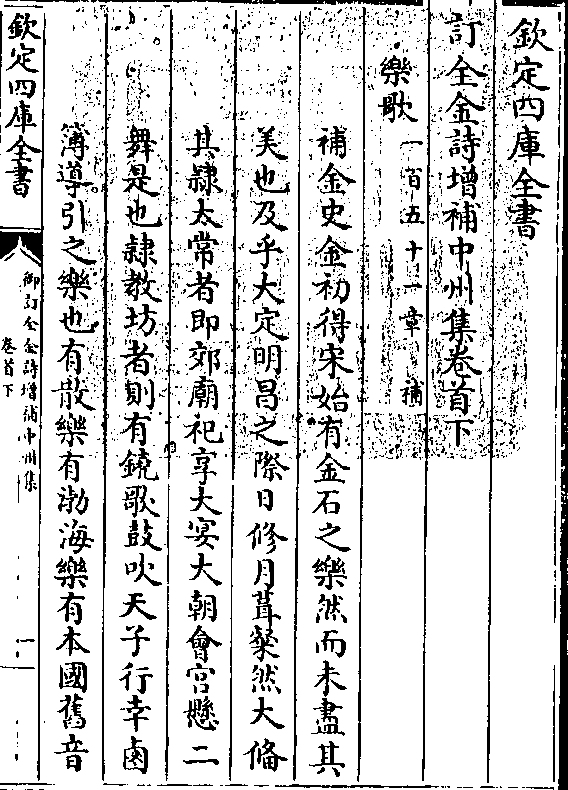 欽定四庫全書
訂全金詩增補中州集卷首下
樂歌一百五十一章 補
補金史金初得宋始有金石之樂然而未盡其
美也及乎大定明昌之際日修月葺粲然大備
其隷太常者即郊廟祀享大宴大朝會宮懸二
舞是也隷教坊者則有鐃歌鼓吹天子行幸鹵
簿導引之樂也有散樂有渤海樂有本國舊音
欽定四庫全書
御訂全金詩增補中州集
卷首下
一